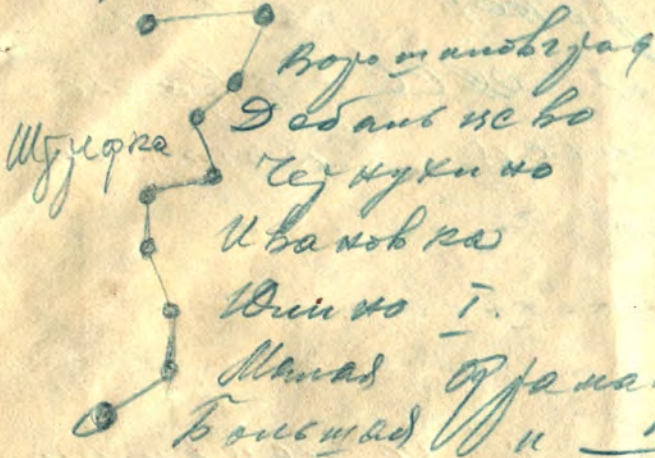 Ворошиловград
Дебальцево
Штуефка Чернухино
Ивановка
Юлино I.
Малая
Большая "